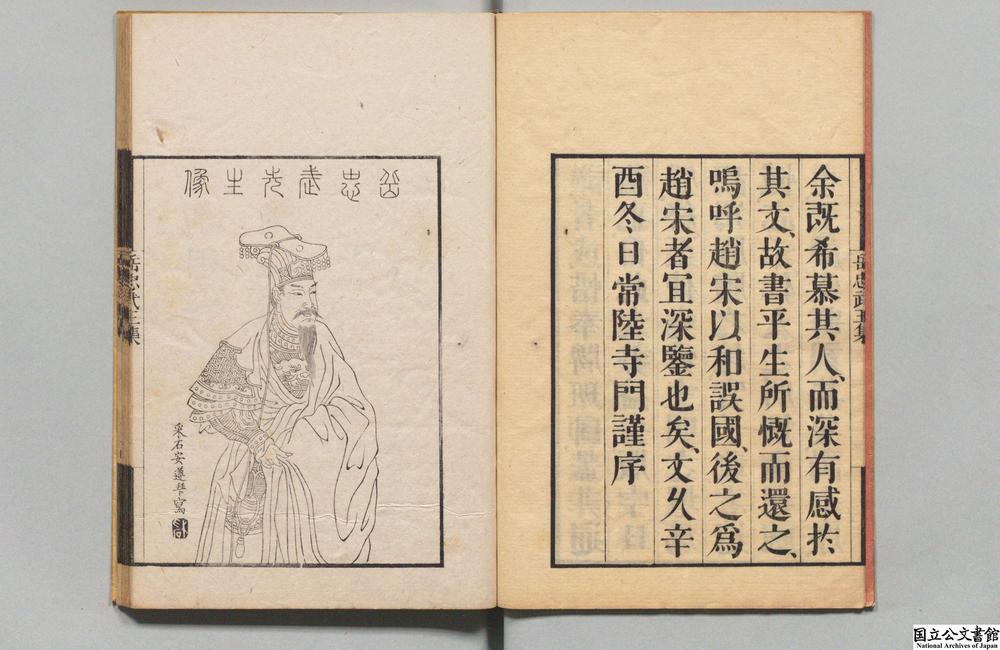 余既希慕其人、而深有感於
其文、故書平生所慨而還之、
嗚呼趙宋以和誤國、後之爲
趙宋者宜深鑒也矣、文久辛
酉冬日常陸寺門謹序
岳忠武王集
岳忠武先生像
采石安遵𠦑寫
岳忠武王集
国立公文書館
National Archives of Japan